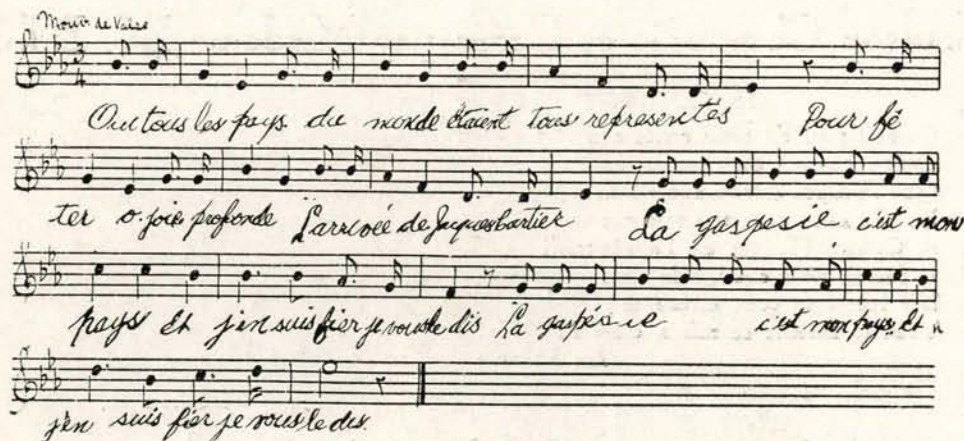 Mouv de Valse
3
4
Oui tous les pays du monde étaient tous representés Pour fê
ter o. joie profonde L'arrivée de Jacques Cartier La gaspesie c'est mon
pays Et j'en suis fier je vous le dis La gaspésie c'est mon pays Et
j'en suis fier je vous le dis.